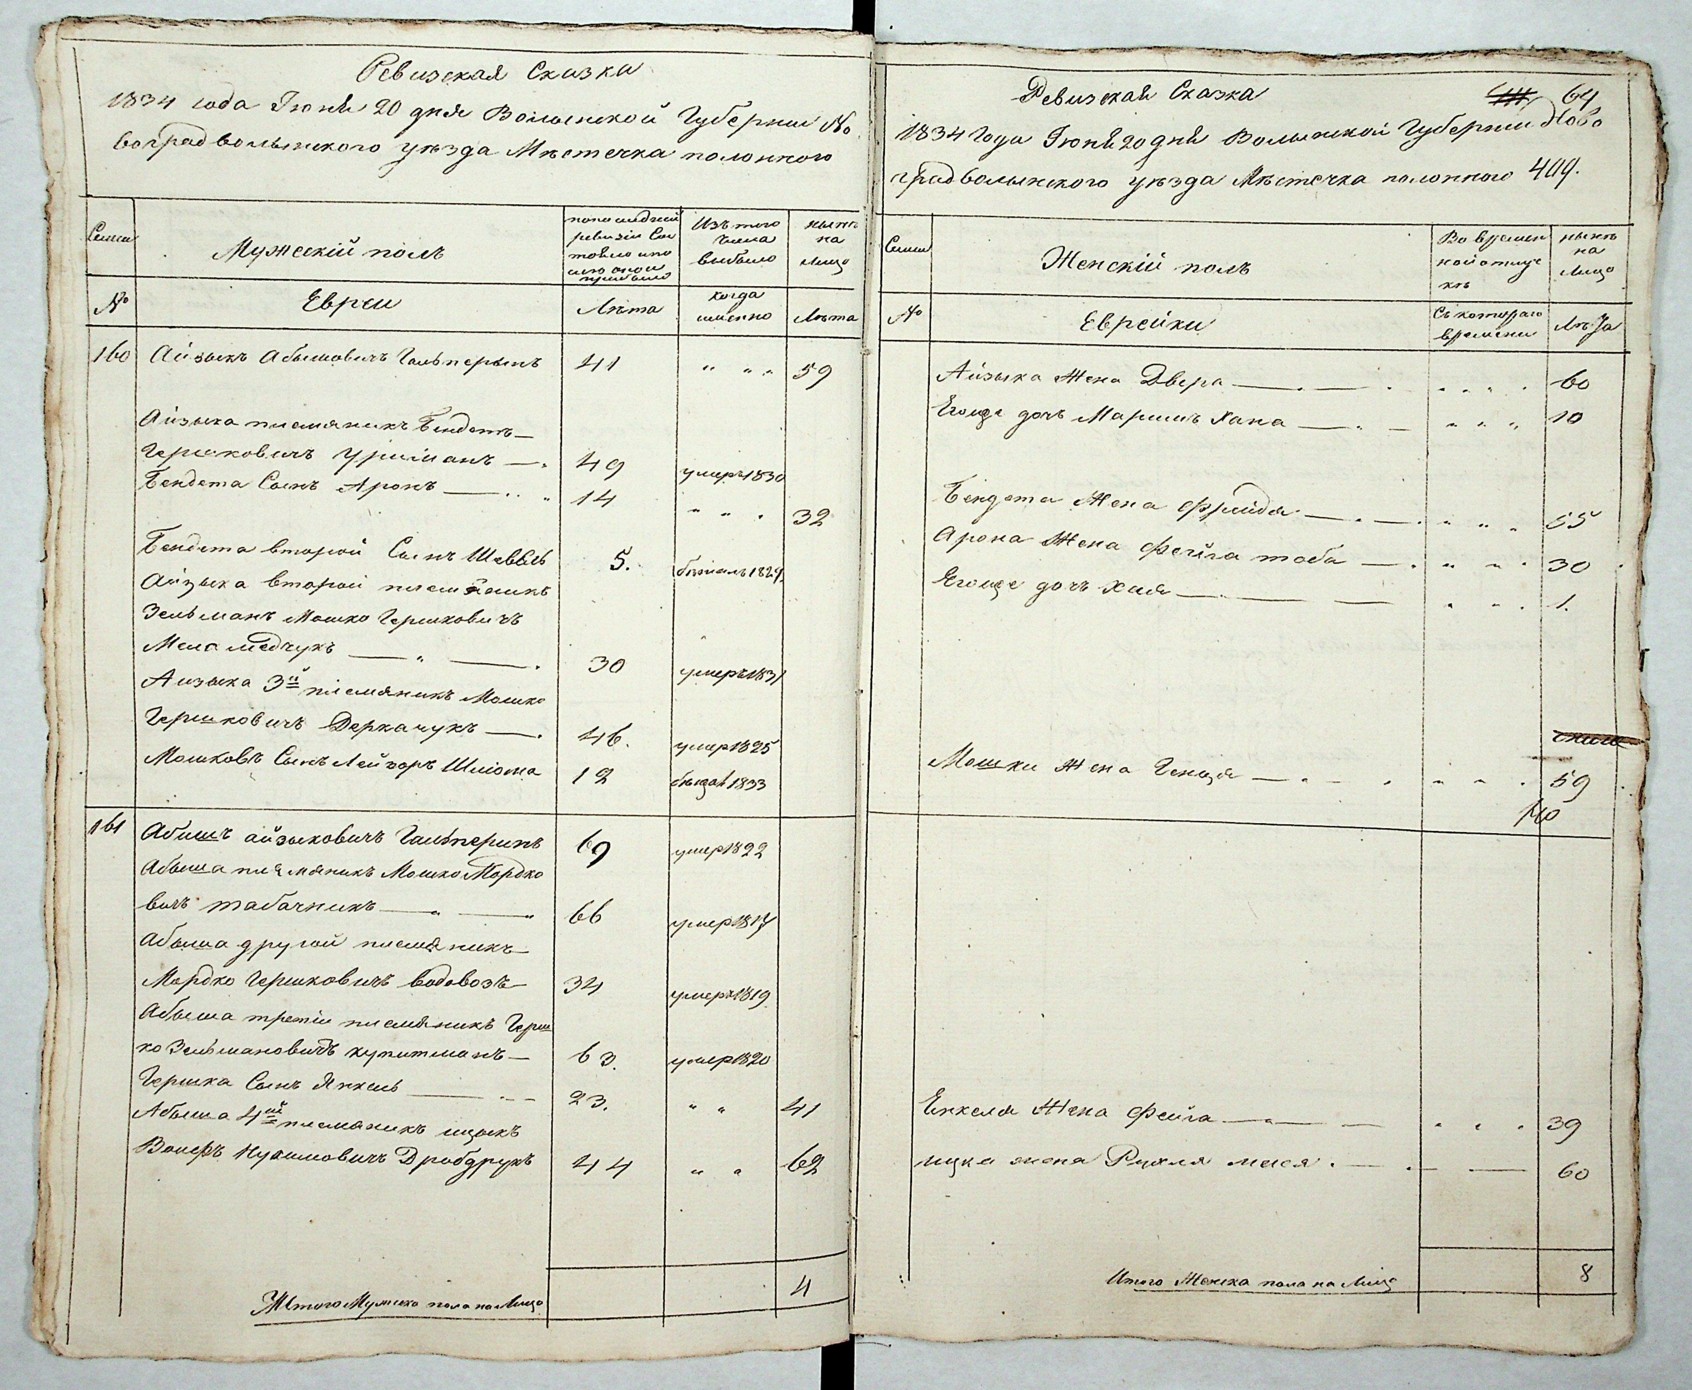 Ревизская Сказка
1834 года Іюня 20 дня Волынской Губерніи Но
воградволынского уѣзда Мѣстечка полонного
Семьи
Мужескій полъ
по последней
ревизіи Сос
тояло и по
слѣ оной
прибыло
Изъ того
числа
выбыло
нынѣ
на
лицо
№
Евреи
Лѣта
когда
именно
Лѣта
160 Айзыкъ Абымовичъ Гальперынъ 41 „ „ „ 59
Айзыка племяникъ Бендетъ —
Гершковичъ Уришанъ — 49 умеръ 1830
Бендета Сынъ Аронъ — 14 „ „ „ 32
Бендета второй Сынъ Шевель 5. бѣжалъ 1829
Айзыка второй племяникъ
Зельманъ Мошко Гершковичъ
Меламедчукъ — „ — 30 умеръ 1831
Айзыка 3й племяникъ Мошко
Гершковичъ Деркачукъ — 46. умер 1825
Мошковъ Сынъ Лейзоръ Шліома 12 1833
161 Абишъ айзыковичъ Гальперинъ 69 умер 1822
Абыша племяникъ Мошко Мордко
вичъ табачникъ — „ — „ 66 умер 1817
Абыша другой племяникъ —
Мордко Гершковичъ водовозъ — 34 умеръ 1819
Абыша третіи племяникъ Герш
ко Зельмановичъ купитманъ — 63. умер 1820
Гершка Сынъ Янкель — 23. „ „ 41
Абыша 4й племяникъ ицыкъ
Волфъ Нухимовичъ Дробдрукъ 44 „ „ 62
Итого Мужеска пола на Лицо 4
Ревизская Сказка 64
1834 Года Іюня 20 дня Волынской Губерніи Ново
градволынского уѣзда Мѣстечка полонного 449.
Семьи
Женскій полъ
Во времен
ной отлуч
кѣ
нынѣ
на
Лицо
№
Еврейки
Съ которого
времени
Лѣта
Айзыка Жена Двера — „ „ „ 60
Егоже дочь Маримъ Хана — „ „ „ 10
Бендета Жена Фрейда — „ „ „ 55
Арона Жена Фейга тоба — „ „ „ 30
Егоже дочь Хая — „ „ „ 1.
Мошки Жена Генця — „ „ „ 59
Енкеля Жена Фейга — „ „ „ 39
ицка жена Рухля меся — 60
Итого Женска пола на Лицо 8